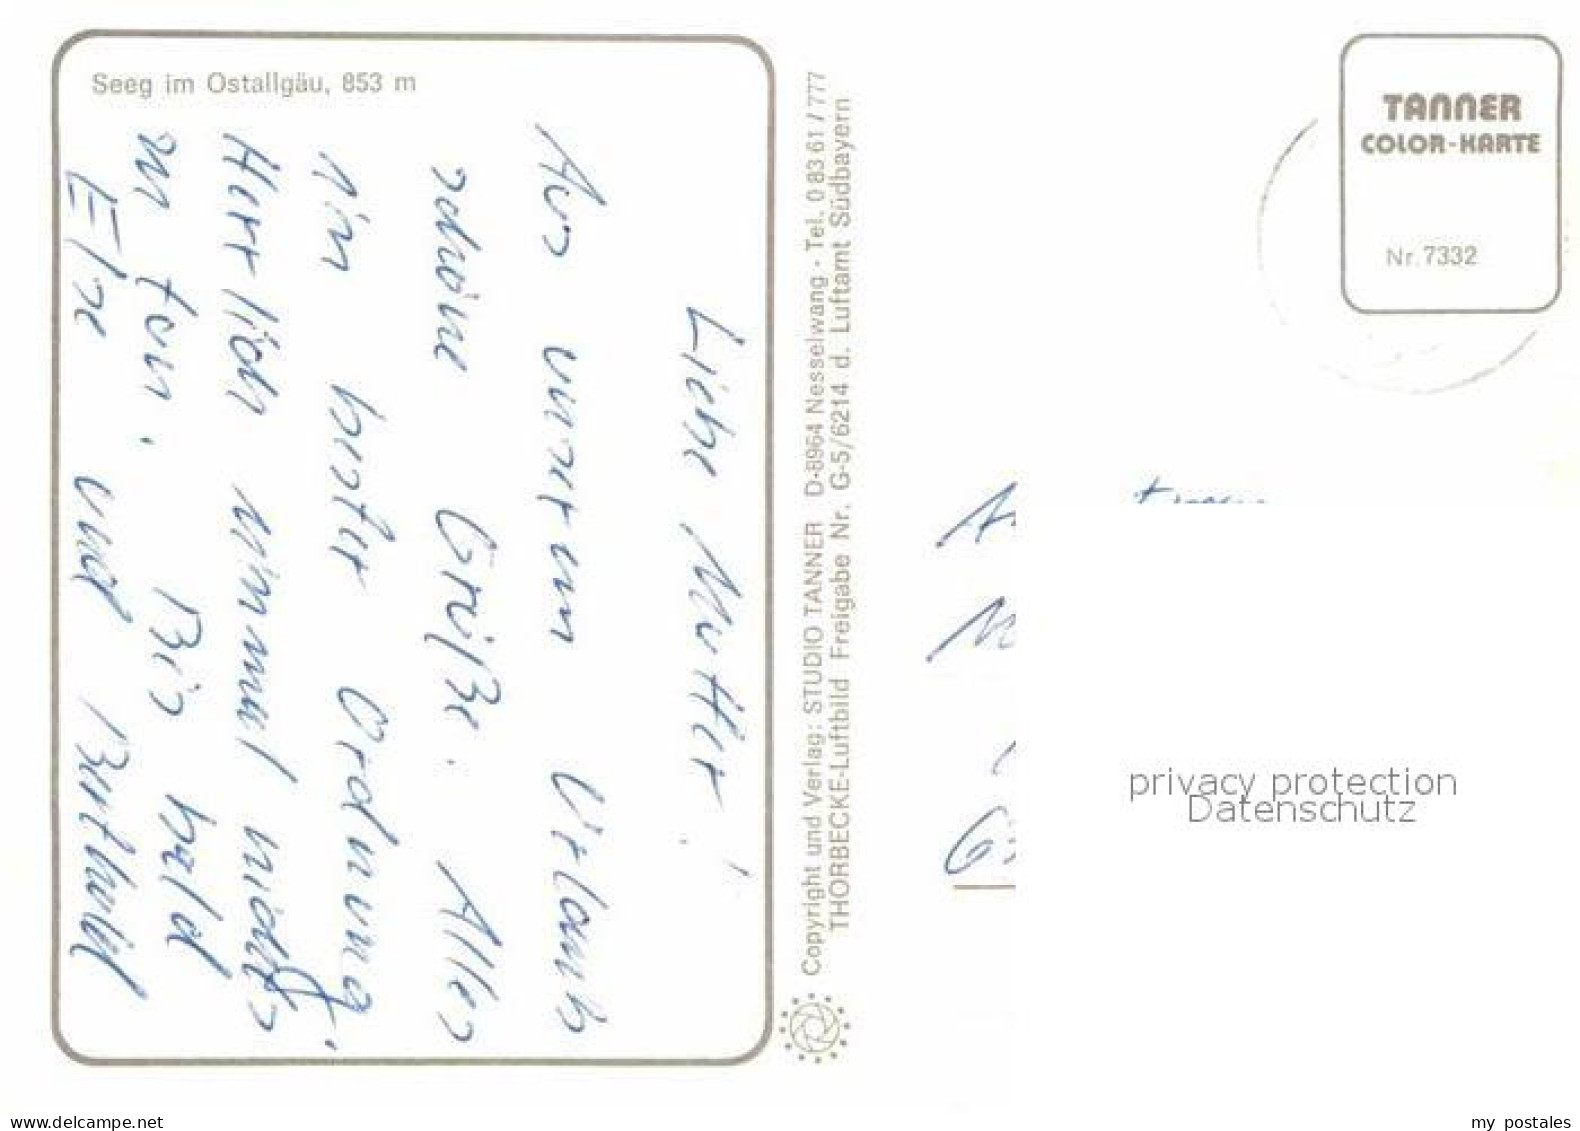 Seeg im Ostallgäu, 853 m
Liebe Mutter!
Aus unserem Urlaub
schöne Grüße. Alles
in bester Ordnung.
Herrlich einmal nichts
zu tun. Bis bald
Else und Berthold
Copyright und Verlag: STUDIO TANNER D-8964 Nesselwang - Tel. 0 83 61 / 777
THORBECKE-Luftbild Freigabe Nr. G-5/6214 d. Luftamt Südbayern
TANNER
COLOR-KARTE
Nr. 7332
privacy protection
Datenschutz
www.delcampe.net
my_postales